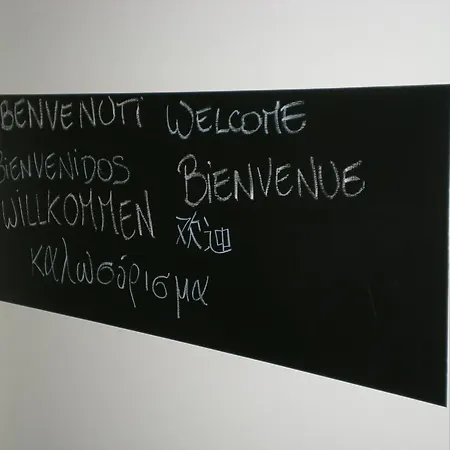 BENVENUTI WELCOME
BIENVENIDOS BIENVENUE
WILLKOMMEN 欢迎
καλωσόρισμα